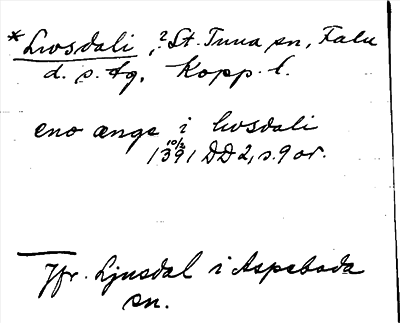 *Liosdali, ?St. Tuna sn, Falu
d. s. tg, Kopp. l.
eno ænge i liosdali
10/2
1391 DD 2, s. 9 or.
Jfr. Ljusdal i Aspeboda
sn.